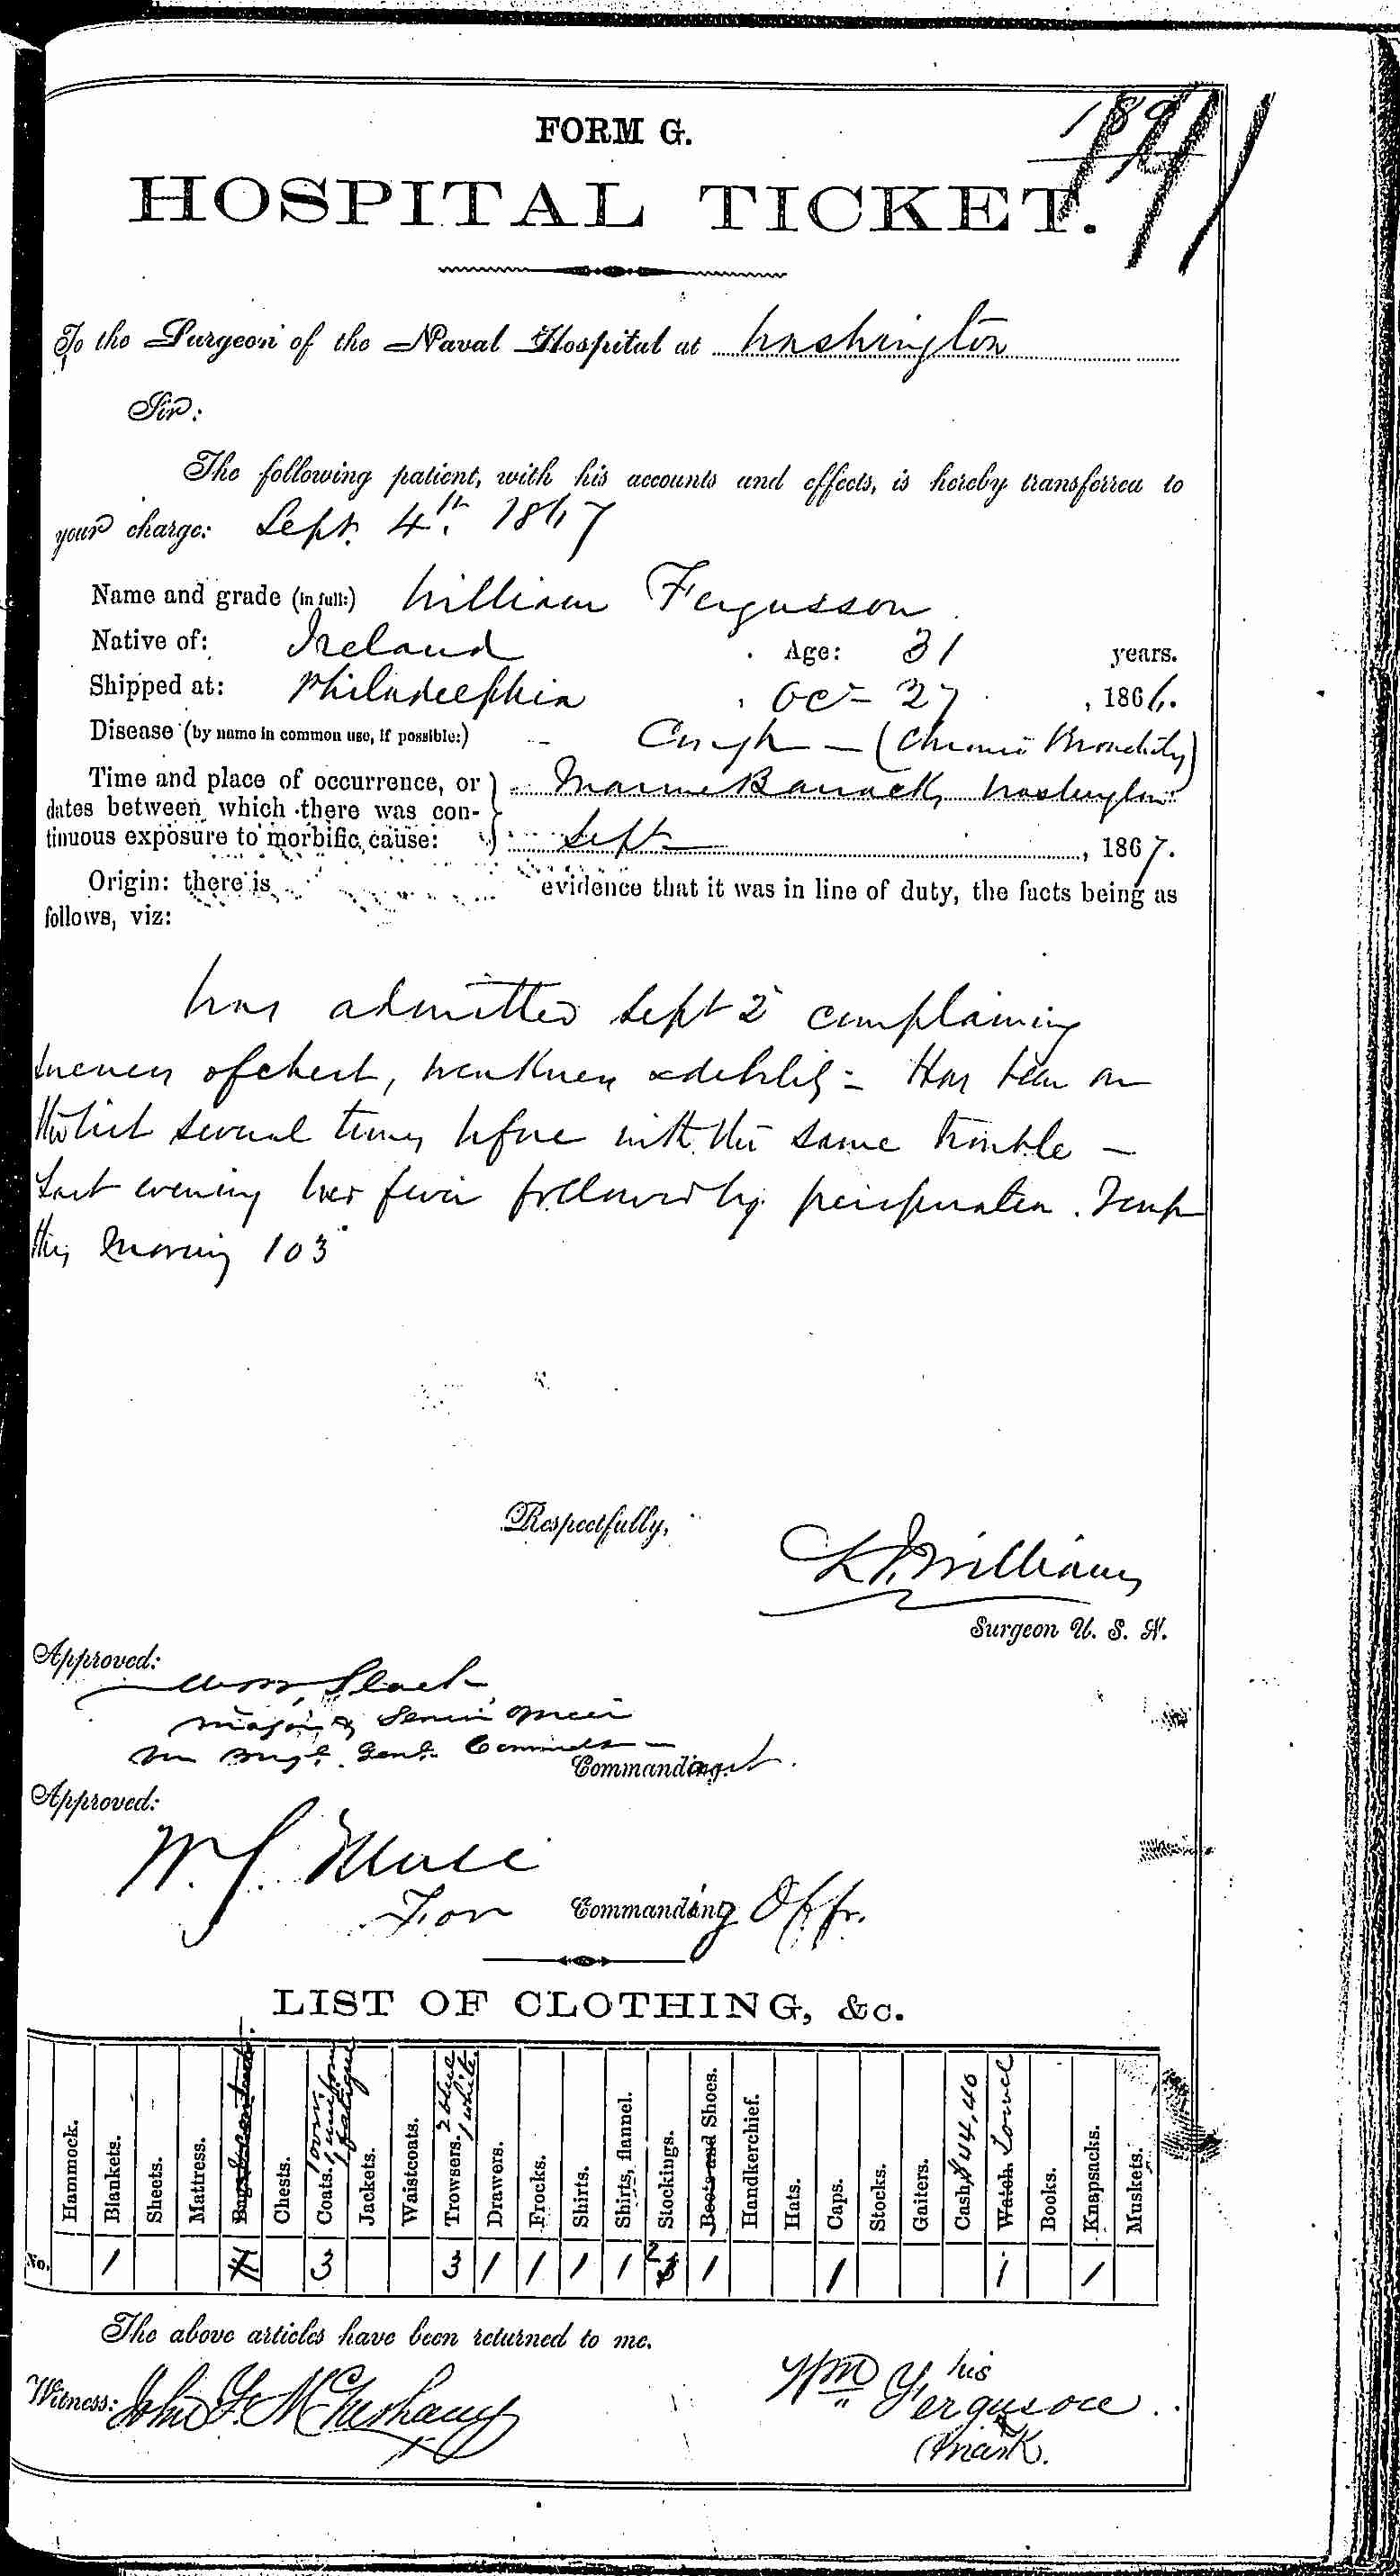 189
141
FORM G.
HOSPITAL TICKET.
To the Surgeon of the Naval Hospital at Washington
Sir:
The following patient, with his accounts and effects, is hereby transferred to
your charge: Sept. 4th. 1867
Name and grade (in full:) William Fergusson
Native of: Ireland . Age: 31 years.
Shipped at: Philadelphia , Oct 27 , 1866.
Disease (by name in common use, if possible:) Cough — (Chronic Bronchitis)
Time and place of occurrence, or Marine Barracks, Washington
dates between which there was con-
tinuous exposure to morbific cause: Sept , 1867.
Origin: there is evidence that it was in line of duty, the facts being as
follows, viz:
Was admitted Sept 2 complaining
soreness of chest, weakness & debility – Has been on
the list several times before with the same trouble —
Last evening has fever followed by perspiration. Temp
this morning 103°
Respectfully,
Williams
Surgeon U. S. N.
Approved:
Wm Slack
Major & Senior Officer
Commanding
Approved:
W. Muse
For Commanding Offr.
LIST OF CLOTHING, &c.
Hammock. Blankets. Sheets. Mattress. Bags. Chests. Coats. 1 over, 1 uniform 1 fatigue Jackets. Waistcoats. Trowsers. 2 blue 1 white. Drawers. Frocks. Shirts. Shirts, flannel. Stockings. Boots and Shoes. Handkerchief. Hats. Caps. Stocks. Gaiters. Cash, $44,40 Watch. Towel Books. Knapsacks. Muskets.
No. 1 3 3 1 1 1 1 2 1 1 1 1
The above articles have been returned to me.
Witness: John F.
Wm his Ferguson
mark.